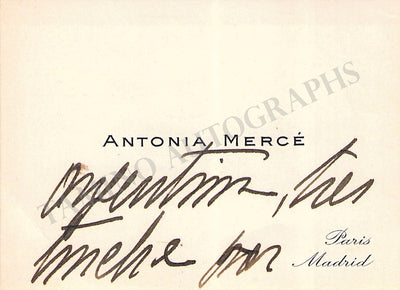 ANTONIA MERCÉ
attention, très
touchée par
Paris
Madrid
TAMINO AUTOGRAPHS